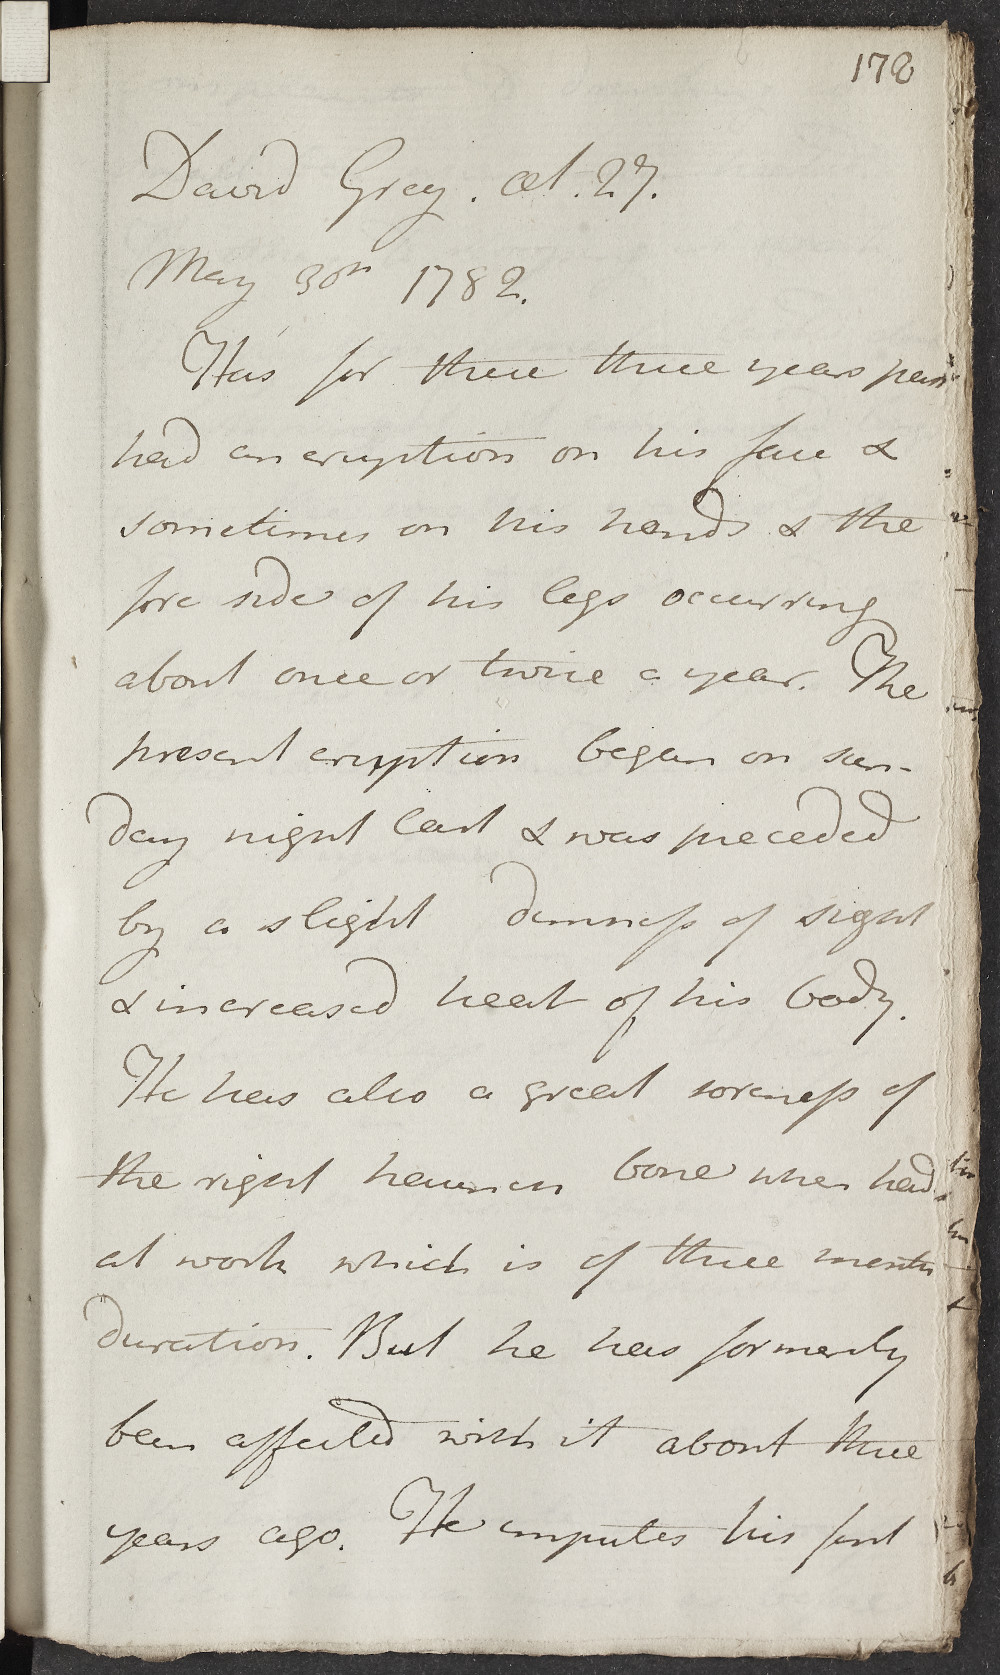 178
David Grey. æt. 27.
May 30th 1782.
Has for these three years past
had an eruption on his face &
sometimes on his hands & the
fore side of his legs occurring
about once or twice a year. The
present eruption began on sun-
day night last & was preceded
by a slight dimness of sight
& increased heat of his body.
He has also a great soreness of
the right haunch bone when hard
at work which is of three months
duration. But he has formerly
been affected with it about three
years ago. He imputes his first